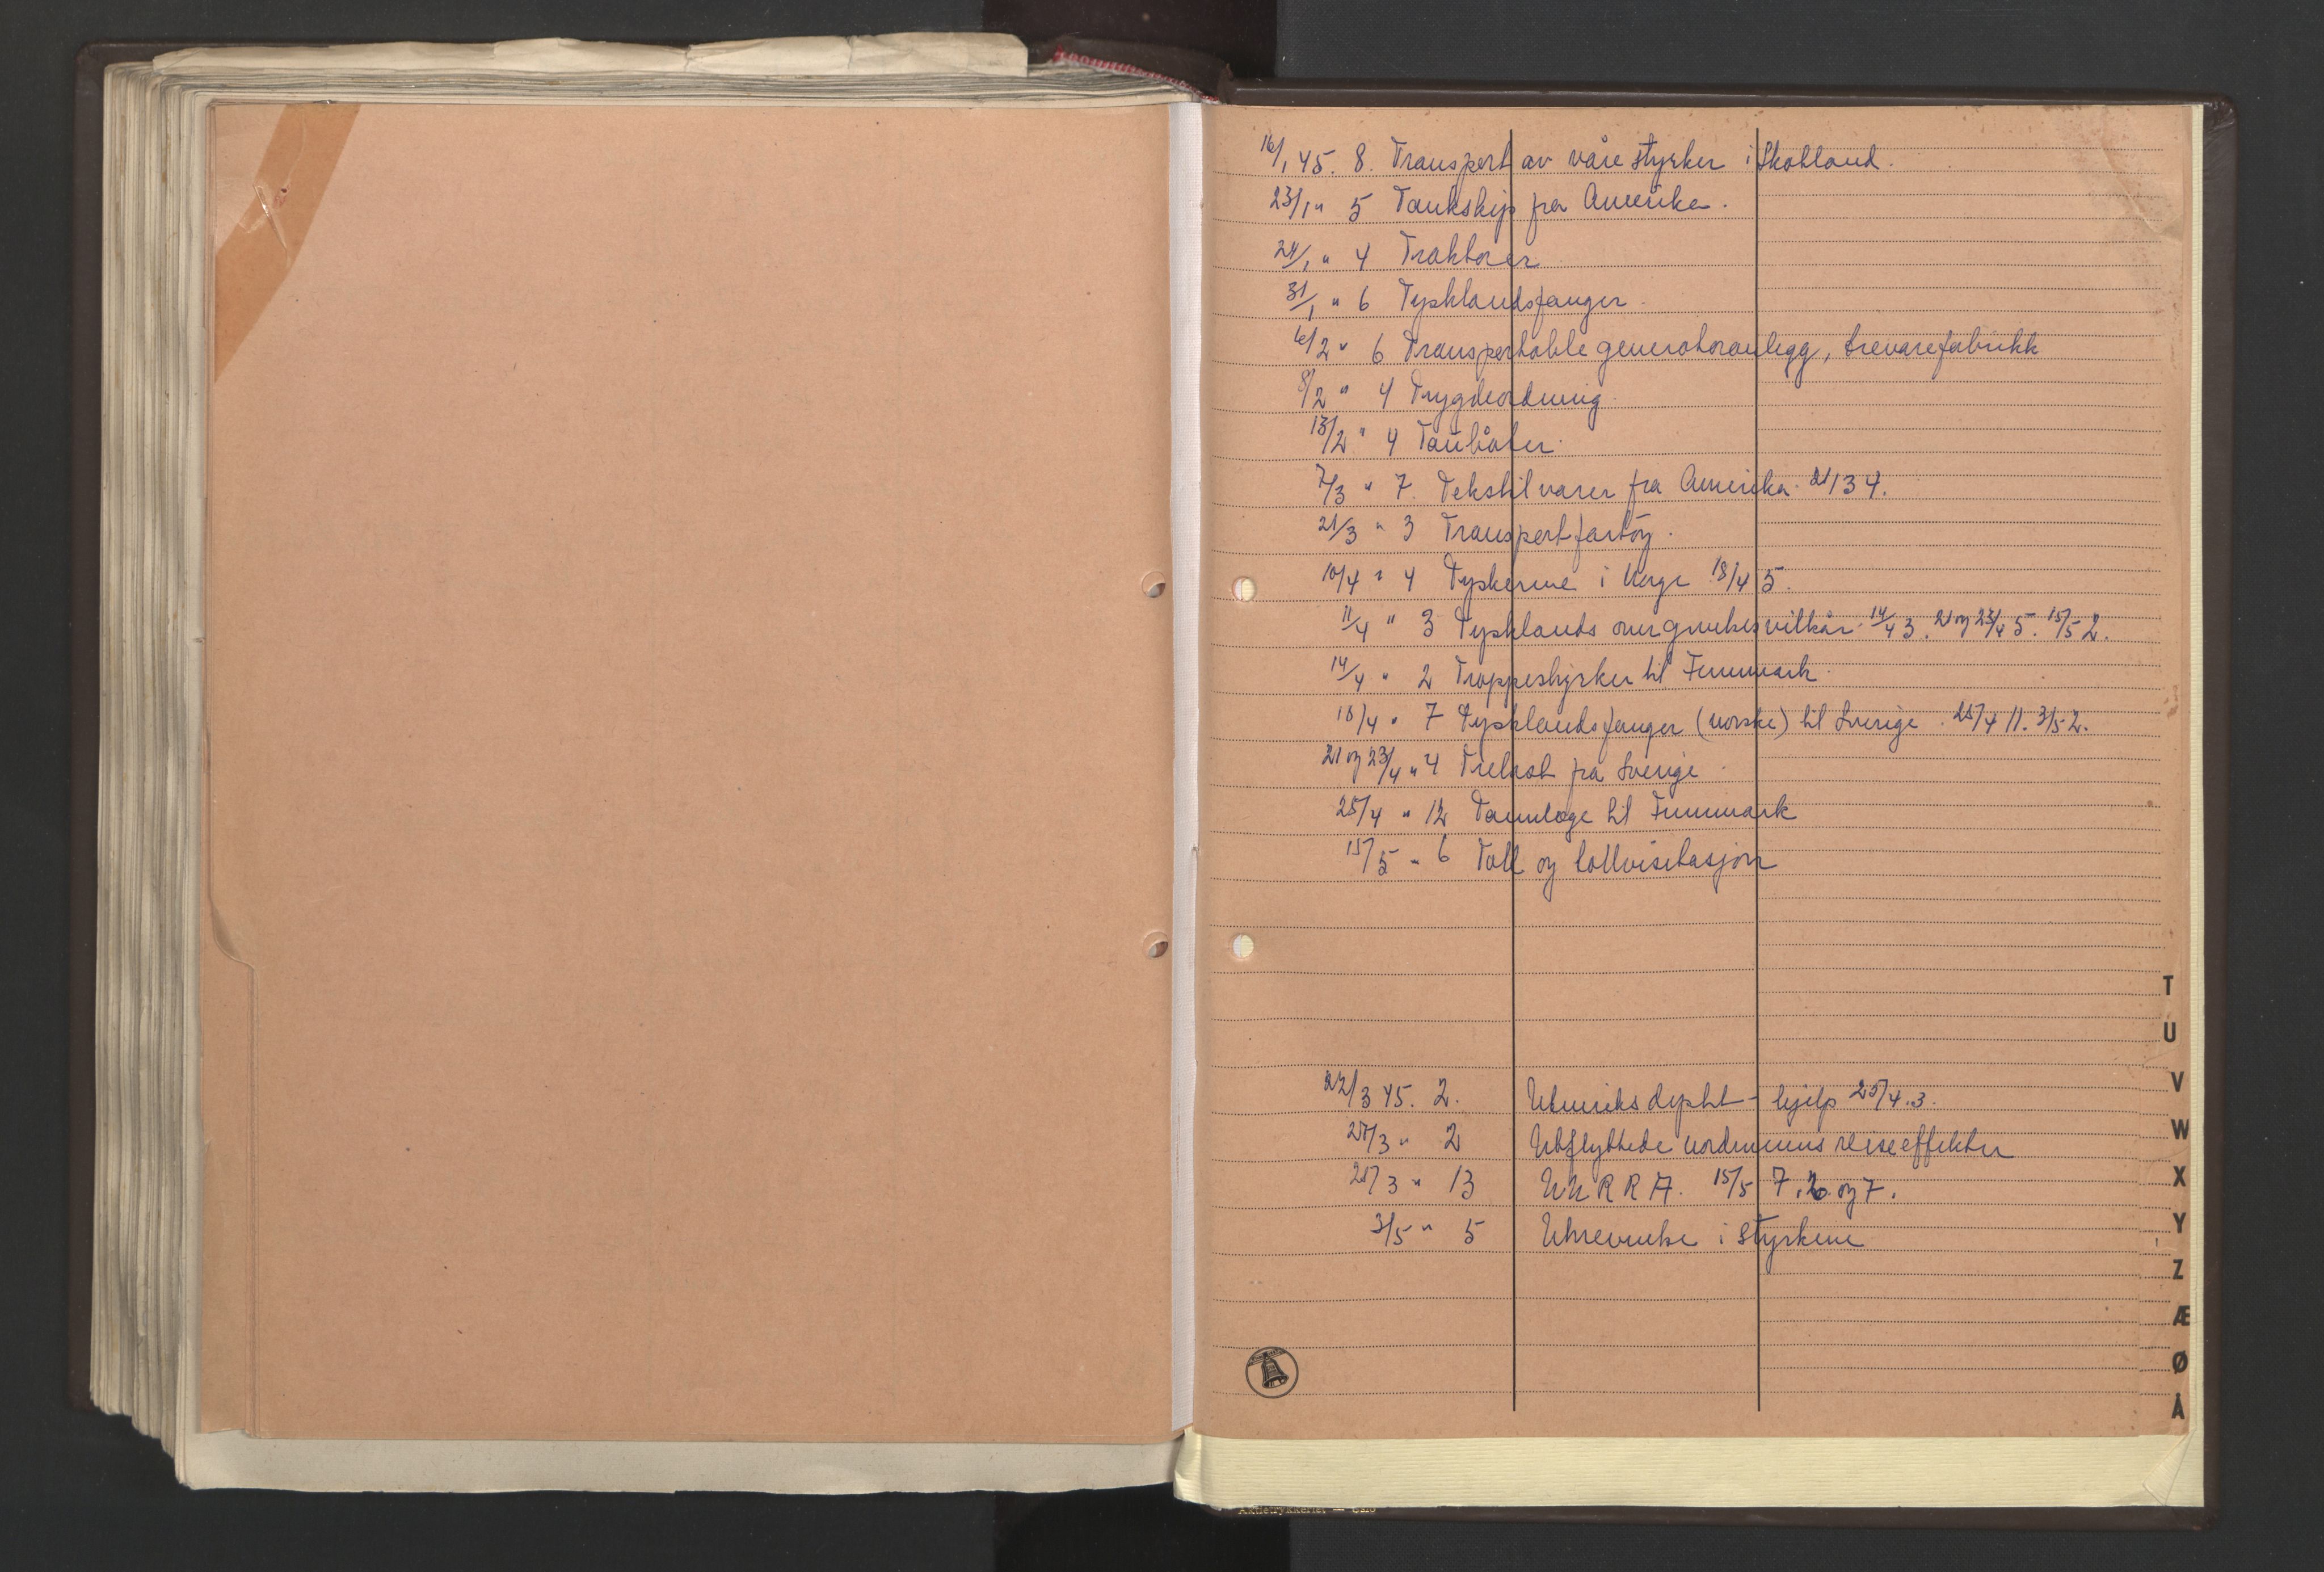 16/1 45. 8. Transport av våre styrker i Skottland.
23/1 " 5 Tankskip fra Amerika.
24/1 " 4 Traktorer
31/1 " 6 Tysklandsfanger.
6/2 " 6 Transportable generatoranlegg, trevarefabrikk
8/2 " 4 Trygdeordning.
13/2 " 4 Taubåter.
7/3 " 7. Tekstilvarer fra Amerika. 21/3 4.
21/3 " 3 Transportfartöy.
10/4 " 4 Tyskerne i Norge 18/4 5.
11/4 " 3 Tysklands overgivelsesvilkår. 14/4 3. 21 og 23/4 5. 15/5 2.
14/4 " 2 Troppestyrker til Finnmark.
18/4 " 7 Tysklandsfanger (norske) til Sverige. 25/4 11. 3/5 2.
21 og 23/4 " 4 Trelast fra Sverige.
25/4 " 12 Tannlege til Finnmark
15/5 " 6 Toll og tollvisitasjon
22/3 45. 2. Utenriksdeptet - hjelp 25/4.3.
27/3 " 2 Utflyttede nordmenns reiseeffekter
27/3 " 13 UNRRA. 15/5 7. 26. og 7.
3/5 " 5 Utnevnelse i styrkene
T
U
V
W
X
Y
Z
Æ
Ø
Å